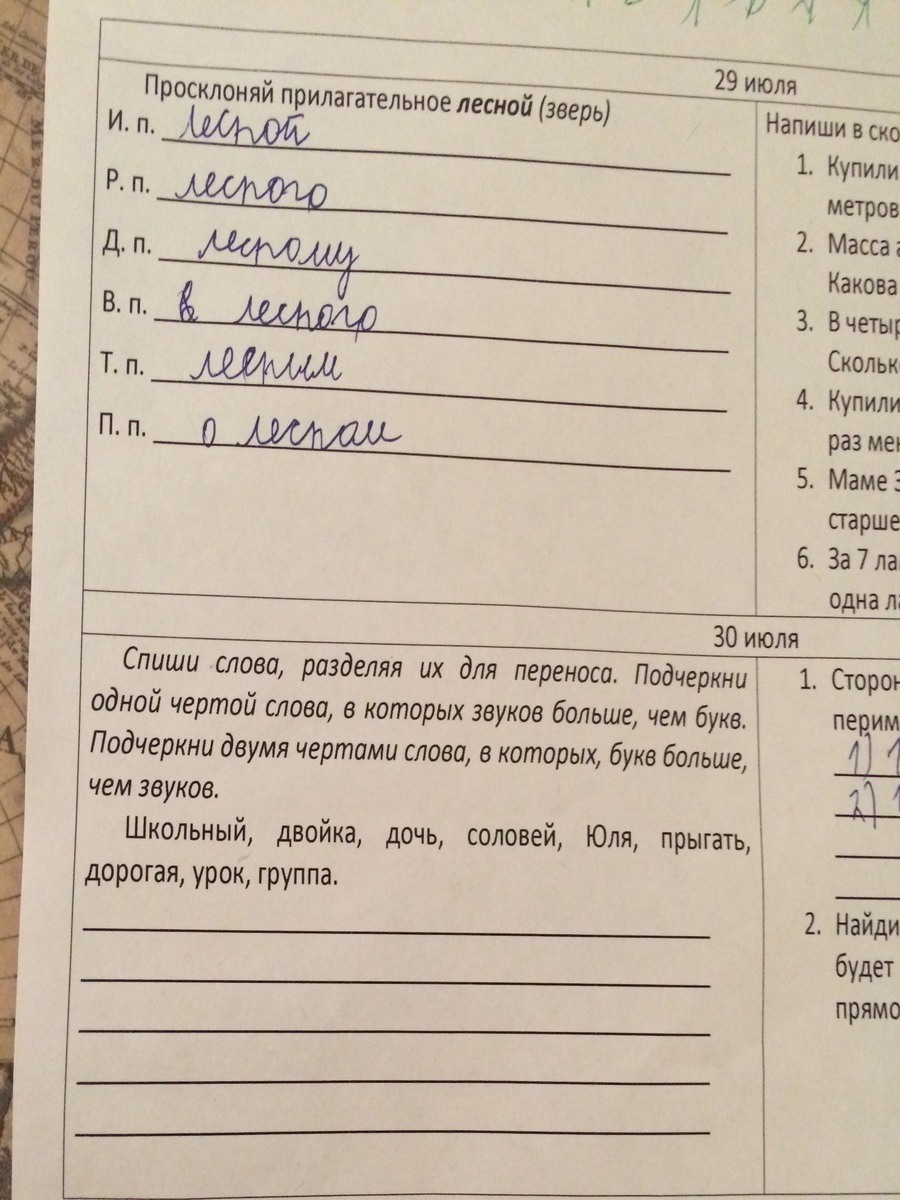 29 июля
Просклоняй прилагательное лесной (зверь)
И. п. лесной
Р. п. лесного
Д. п. лесному
В. п. в лесного
Т. п. лесным
П. п. о лесном
Напиши в ско
1. Купили
метров
2. Масса а
Какова
3. В четыр
Скольк
4. Купили
раз мен
5. Маме 3
старше
6. За 7 ла
одна ла
30 июля
Спиши слова, разделяя их для переноса. Подчеркни
одной чертой слова, в которых звуков больше, чем букв.
Подчеркни двумя чертами слова, в которых, букв больше,
чем звуков.
Школьный, двойка, дочь, соловей, Юля, прыгать,
дорогая, урок, группа.
1. Сторон
перим
1) 1
2) 1
2. Найди
будет
прямо